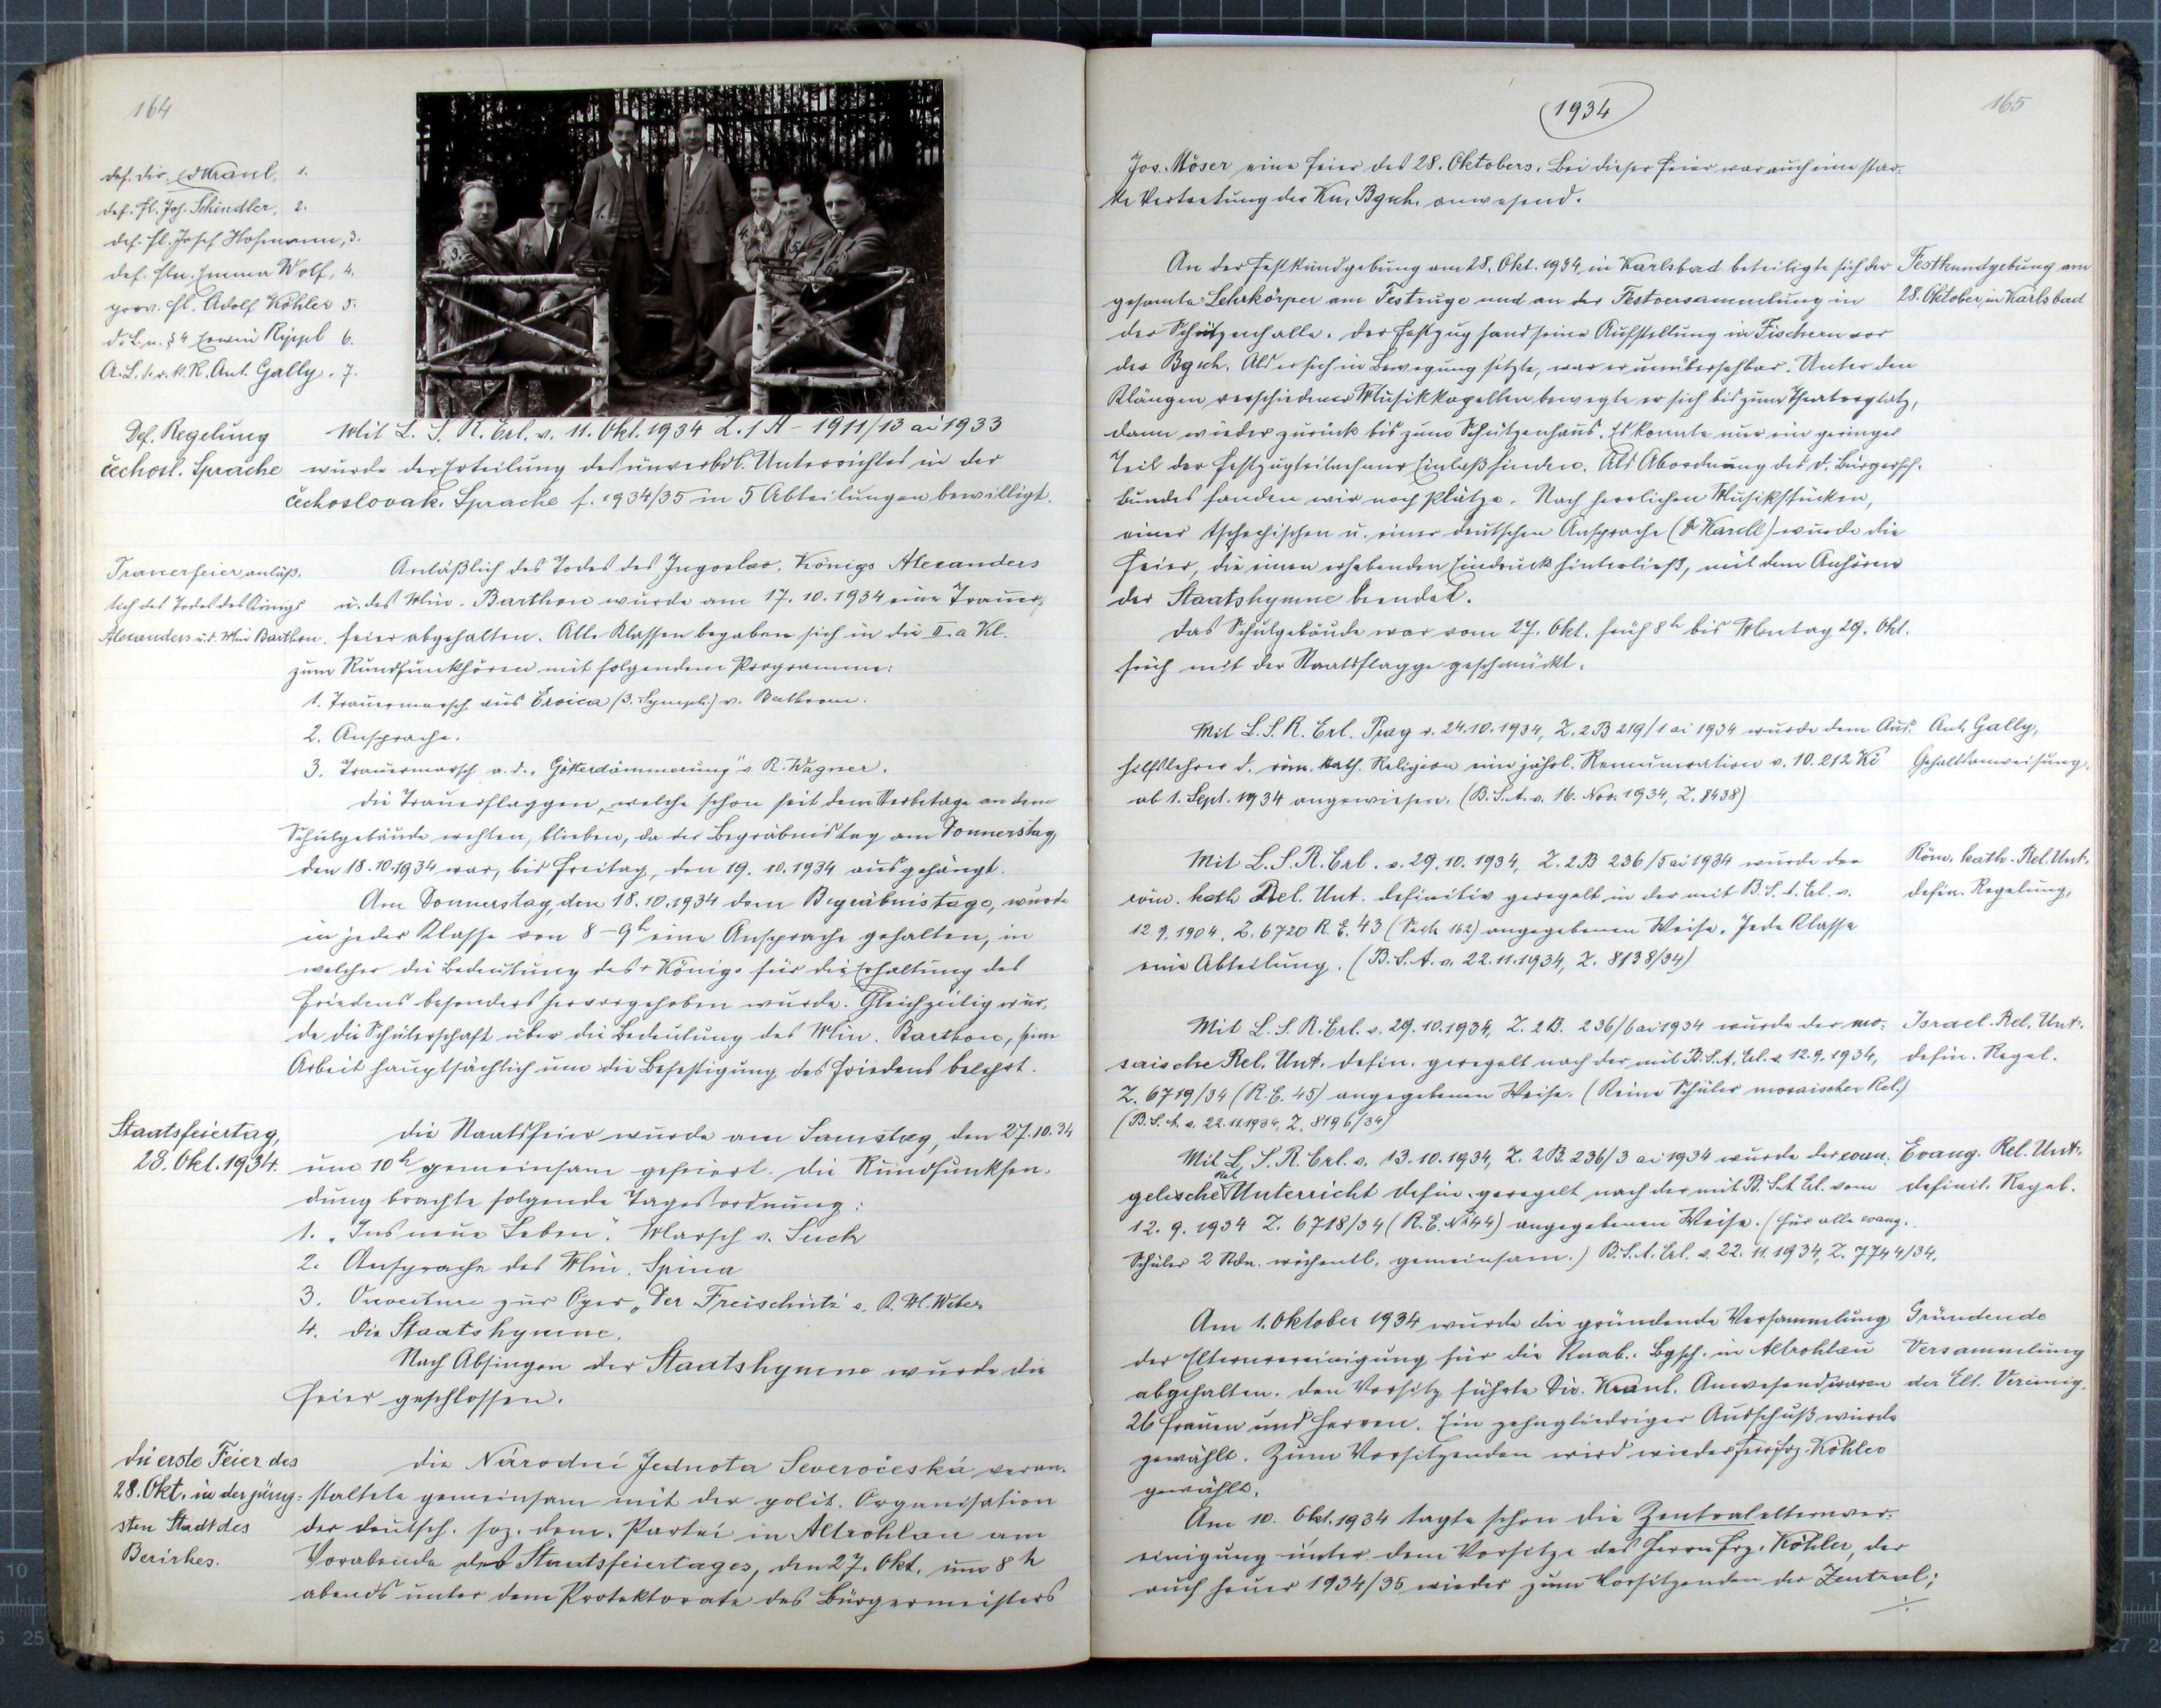 164
def. Dir. E. Kraul, 1.
def. Fl. Joh. Schindler, 2.
def. Fl. Josef Hofmann, 3.
def. Fln. Emma Wolf, 4.
prov. Fl. Adolf Köhler 5.
d. L. n. § 4 Erwin Rippl 6.
A. L. f. r. k. R. Ant. Gally. 7.
Def. Regelung
čechosl. Sprache
Mit L. S. R. Erl. v. 11. Okt. 1934 Z. 1 A - 1911/13 ai 1933
wurde der Erteilung des unverbdl. Unterrichtes in der
čechoslovak. Sprache f. 1934/35 in 5 Abteilungen bewilligt.
Trauerfeier anläß-
lich des Todes des Königs
Alexanders u. d. Min Barthou.
Anläßlich des Todes des Jugoslav. Königs Alexanders
u. des Min. Barthou wurde am 17.10.1934 eine Trauer-
feier abgehalten. Alle Klassen begaben sich in die II. a Kl.
zum Rundfunkhören mit folgendem Programme:
1. Trauermarsch aus Eroica (3. Symph.) v. Bethoven.
2. Ansprache.
3. Trauermarsch a. d. „Götterdämmerung" v R. Wagner.
Die Trauerflaggen, welche schon seit dem Sterbetage an dem
Schulgebäude wehten, blieben, da der Begräbnistag am Donnerstag,
den 18.10.1934 war, bis Freitag, den 19.10.1934 ausgehängt.
Am Donnerstag, den 18.10.1934 dem Begräbnistage, wurde
in jeder Klasse von 8-9h eine Ansprache gehalten, in
welcher die Bedeutung des + Königs für die Erhaltung des
Friedens besonders hervorgehoben wurde. Gleichzeitig wur-
de die Schülerschaft über die Bedeutung des Min. Barthou, seine
Arbeit hauptsächlich um die Befestigung des Friedens belehrt.
Staatsfeiertag,
28. Okt. 1934.
Die Staatsfeier wurde am Samstag, den 27.10.34
um 10h gemeinsam gefeiert. Die Rundfunksen-
dung brachte folgende Tagesordnung:
1. „Ins neue Leben". Marsch v. Suck
2. Ansprache des Min. Spina
3. Ouverture zur Oper „Der Freischütz" v. K. M. Weber
4. Die Staatshymne.
Nach Absingen der Staatshymne wurde die
Feier geschlossen.
Die erste Feier des
28. Okt. in der jüng-
sten Stadt des
Bezirkes.
Die Národní Jednota Severočeská veran-
staltete gemeinsam mit der polit. Organisation
der deutsch. soz. dem. Partei in Altrohlau am
Vorabende des Staatsfeiertages, den 27. Okt. um 8h
abends unter dem Protektorate des Bürgermeisters
1934
165
Jos. Möser eine Feier des 28. Oktobers. Bei dieser Feier war auch eine star-
ke Vertretung der Kn. Bgsch. anwesend.
An der Festkundgebung am 28. Okt. 1934 in Karlsbad beteiligte sich der
gesamte Lehrkörper am Festzuge und an der Festversammlung in
der Schützenhalle. Der Festzug fand seine Aufstellung in Fischern vor
der Bgsch. Als er sich in Bewegung setzte, war er unübersehbar. Unter den
Klängen verschiedener Musikkapellen bewegte er sich bis zum Theaterplatz,
dann wieder zurück bis zum Schützenhaus. Es konnte nur ein geringer
Teil der Festzugteilnehmer Einlaß finden. Als Abordnung des d. Bürgersch.
bundes fanden wir noch Plätze. Nach herrlichen Musikstücken,
einer tschechischen u. einer deutschen Ansprache (Dr Karell) wurde die
Feier, die einen erhebenden Eindruck hinterließ, mit dem Anhören
der Staatshymne beendet.
Festkundgebung am
28. Oktober in Karlsbad
Das Schulgebäude war vom 27. Okt. früh 8h bis Montag 29. Okt.
früh mit der Staatsflagge geschmückt.
Mit L. S. R. Erl. Prag v. 24.10.1934, Z. 2 B 219/1 ai 1934 wurde dem Aus-
hilfslehrer d. röm. kath. Religion eine jährl. Remuneration v. 10.212 Kč
ab 1. Sept. 1934 angewiesen. (B. S. A. v. 16. Nov. 1934, Z. 8438)
Ant. Gally,
Gehaltsanweisung.
Mit L. S. R. Erl. v. 29.10.1934, Z. 2 B 236/5 ai 1934 wurde der
röm. kath Rel. Unt. definitiv geregelt in der mit B. S. A. Erl. v.
12.9.1904, Z. 6720 R. E. 43 (Seite 162) angegebenen Weise. Jede Klasse
eine Abteilung. (B. S. A. v. 22.11.1934, Z. 8138/34)
Röm. kath. Rel. Unt.
defin. Regelung,
Mit L. S. R. Erl. v. 29.10.1934, Z. 2 B. 236/6 ai 1934 wurde der mo-
saische Rel. Unt. defin. geregelt nach der mit B. S. A. Erl. v 12.9.1934,
Z. 6719/34 (R. E. 45) angegebenen Weise. (Keine Schüler mosaischer Rel.)
(B. S. A. v. 22.11.1934, Z. 8196/34)
Israel. Rel. Unt.
defin. Regel.
Mit L. S. R. Erl. v. 13.10.1934, Z. 2 B. 236/3 ai 1934 wurde der evan-
gelische Rel Unterricht defin. geregelt nach der mit B. S. A Erl. vom
12.9.1934 Z. 6718/34 (R. E. No 44) angegebenen Weise. (Für alle evang.
Schüler 2 Stdn. wöchentl. gemeinsam.) B. S. A. Erl. v. 22.11.1934, Z. 7744/34.
Evang. Rel. Unt.
definit. Regel.
Am 1. Oktober 1934 wurde die gründende Versammlung
der Elternvereinigung für die Knab. Bgsch. in Altrohlau
abgehalten. Den Vorsitz führte Dir. Kraul. Anwesend waren
26 Frauen und Herren. Ein zehngliedriger Ausschuß wurde
gewählt. Zum Vorsitzenden wird wieder Herr Frz. Köhler
gewählt.
Gründende
Versammlung
der Elt. Vereinig.
Am 10. Okt. 1934 tagte schon die Zentralelternver-
einigung unter dem Vorsitze des Herrn Frz. Köhler, der
auch heuer 1934/35 wieder zum Vorsitzenden der Zentral-
./.